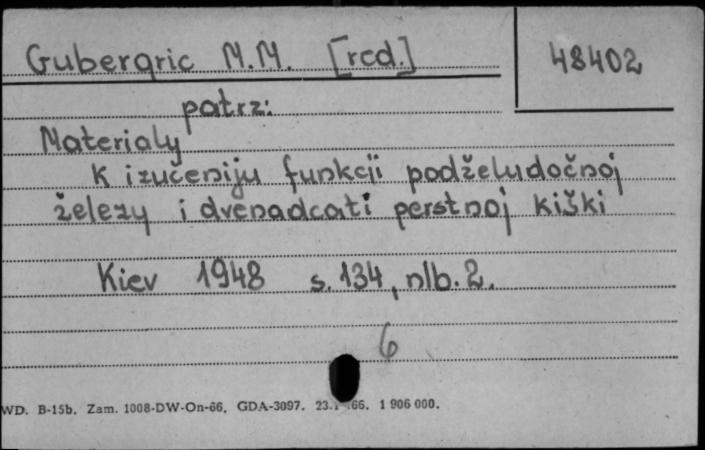 Gubergric M.M. [red.]
48402
patrz:
Materialy
k izučeniju funkcji podželudočnoj
železy i dvenadcati perstnoj kiški
Kiev 1948 s. 134, nlb. 2.
6
WD. B-15b. Zam. 1008-DW-On-66. GDA-3097. 66. 1 906 000.